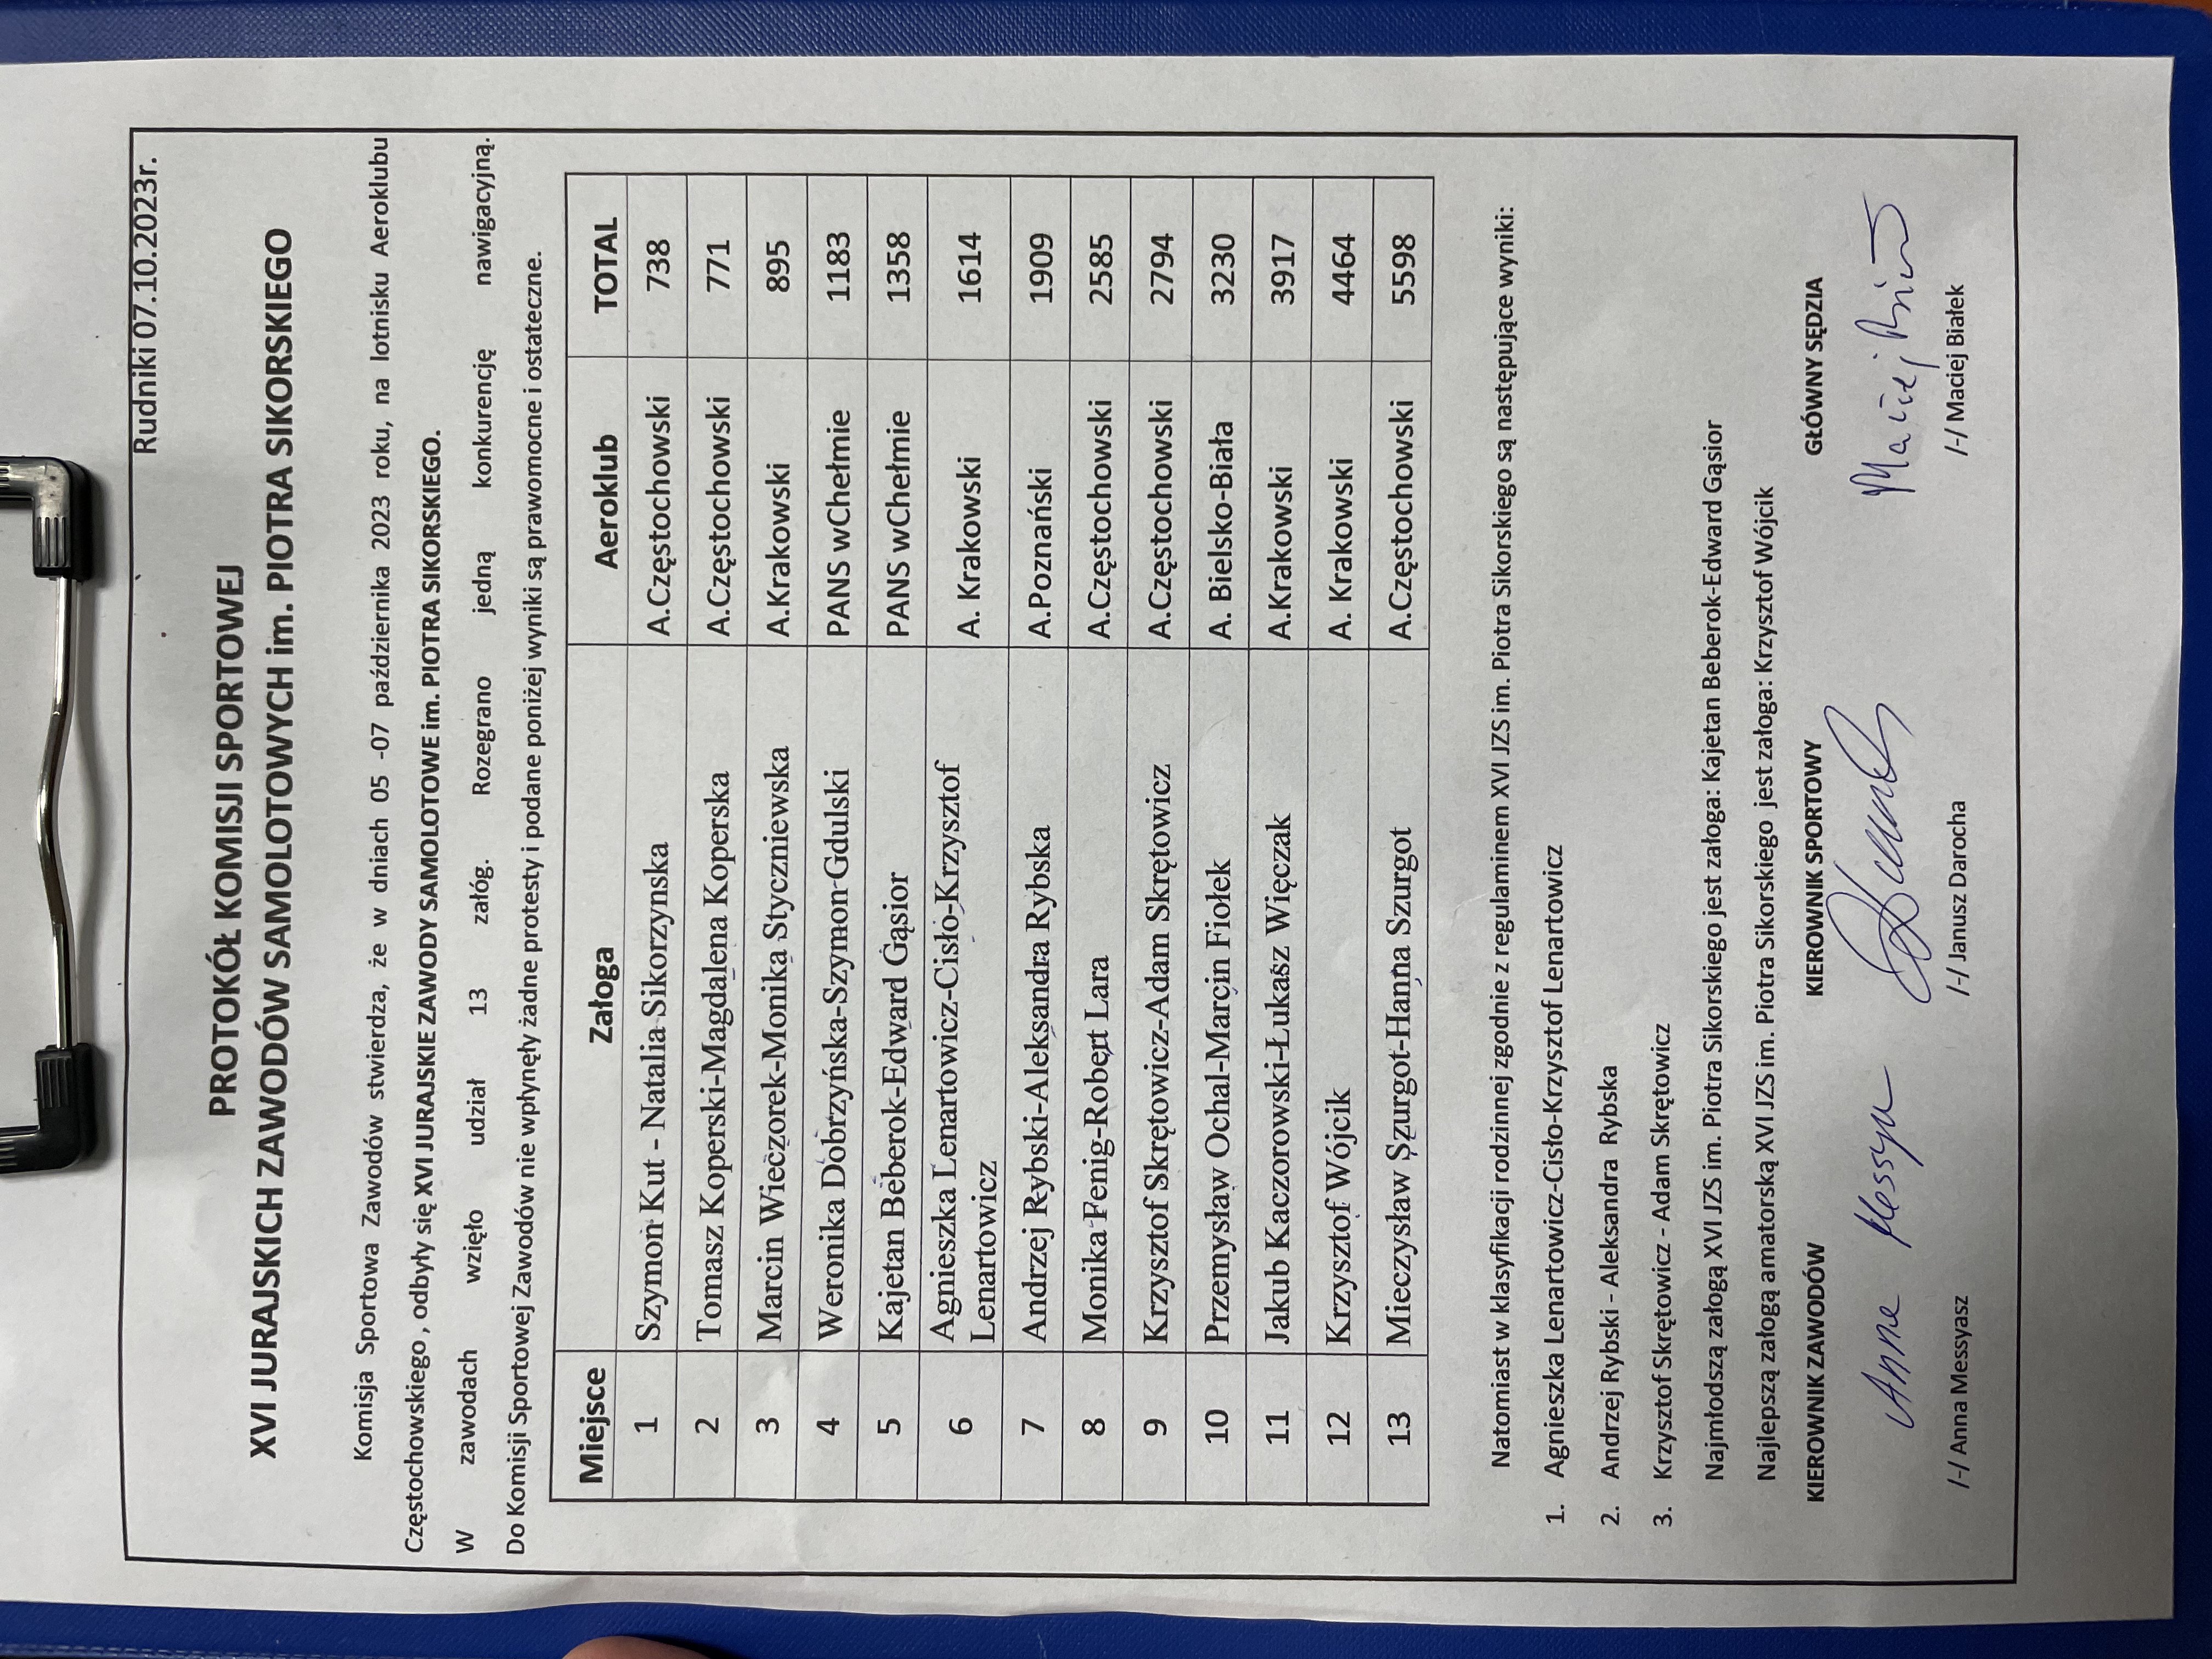 Rudniki 07.10.2023r.
PROTOKÓŁ KOMISJI SPORTOWEJ
XVI JURAJSKICH ZAWODÓW SAMOLOTOWYCH im. PIOTRA SIKORSKIEGO
Komisja Sportowa Zawodów stwierdza, że w dniach 05 -07 października 2023 roku, na lotnisku Aeroklubu
Częstochowskiego , odbyły się XVI JURAJSKIE ZAWODY SAMOLOTOWE im. PIOTRA SIKORSKIEGO.
W zawodach wzięło udział 13 załóg. Rozegrano jedną konkurencję nawigacyjną.
Do Komisji Sportowej Zawodów nie wpłynęły żadne protesty i podane poniżej wyniki są prawomocne i ostateczne.
Miejsce Załoga Aeroklub TOTAL
1 Szymon Kut - Natalia Sikorzynska A.Częstochowski 738
2 Tomasz Koperski-Magdalena Koperska A.Częstochowski 771
3 Marcin Wieczorek-Monika Styczniewska A.Krakowski 895
4 Weronika Dobrzyńska-Szymon-Gdulski PANS wChełmie 1183
5 Kajetan Beberok-Edward Gąsior PANS wChełmie 1358
6 Agnieszka Lenartowicz-Cisło-Krzysztof A. Krakowski 1614
Lenartowicz
7 Andrzej Rybski-Aleksandra Rybska A.Poznański 1909
8 Monika Fenig-Robert Lara A.Częstochowski 2585
9 Krzysztof Skrętowicz-Adam Skrętowicz A.Częstochowski 2794
10 Przemysław Ochal-Marcin Fiołek A. Bielsko-Biała 3230
11 Jakub Kaczorowski-Łukasz Więczak A.Krakowski 3917
12 Krzysztof Wójcik A. Krakowski 4464
13 Mieczysław Szurgot-Hanna Szurgot A.Częstochowski 5598
Natomiast w klasyfikacji rodzinnej zgodnie z regulaminem XVI JZS im. Piotra Sikorskiego są następujące wyniki:
1. Agnieszka Lenartowicz-Cisło-Krzysztof Lenartowicz
2. Andrzej Rybski - Aleksandra Rybska
3. Krzysztof Skrętowicz - Adam Skrętowicz
Najmłodszą załogą XVI JZS im. Piotra Sikorskiego jest załoga: Kajetan Beberok-Edward Gąsior
Najlepszą załogą amatorską XVI JZS im. Piotra Sikorskiego jest załoga: Krzysztof Wójcik
KIEROWNIK ZAWODÓW KIEROWNIK SPORTOWY GŁÓWNY SĘDZIA
Maciej
/-/ Anna Messyasz /-/ Janusz Darocha /-/ Maciej Białek